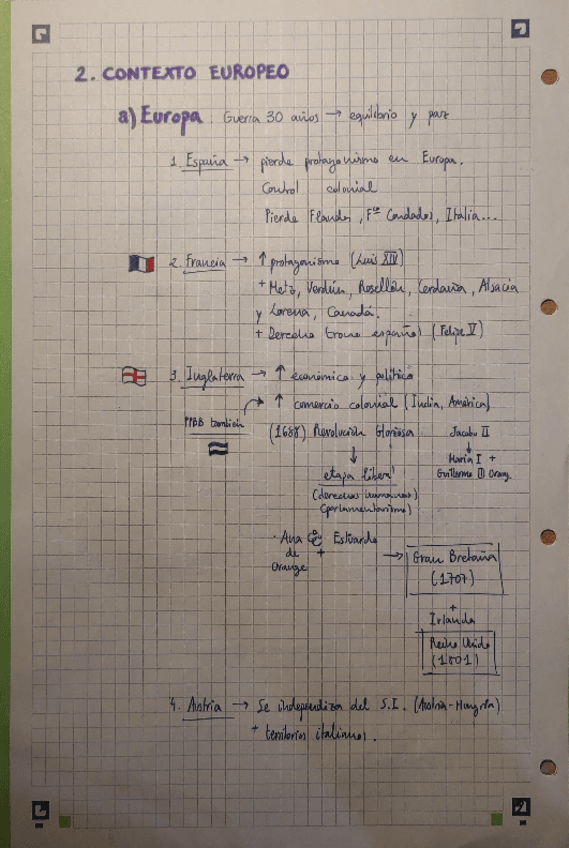 2. CONTEXTO EUROPEO
a) Europa: Guerra 30 años → equilibrio y paz
1. España → pierde protagonismo en Europa.
Control colonial
Pierde Flandes, Fco Condado, Italia...
2. Francia → ↑ protagonismo (Luis XIV)
+ Metz, Verdún, Rosellón, Cerdanya, Alsacia
y Lorena, Canadá.
+ Derecho trono español (Felipe V)
3. Inglaterra → ↑ económico y político
↑ comercio colonial (India, América)
PPBB también
(1688) Revolución Gloriosa
↓
etapa liberal
(derechos humanos)
(parlamentarismo)
Jacobo II
↓
María I +
Guillermo III Orang.
· Ana Estuardo
de +
Orange
→ Gran Bretaña
(1707)
+
Irlanda
Reino Unido
(1801)
4. Austria → Se independiza del S.I. (Austria-Hungría)
+ territorios italianos.